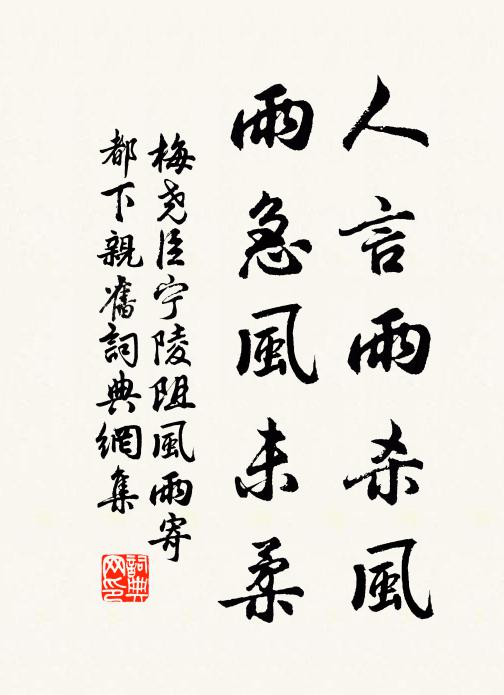 人言雨杀風
雨急風未柔
梅尧臣宁陵阻風雨寄
都下親舊詞典網集
詞典
网印